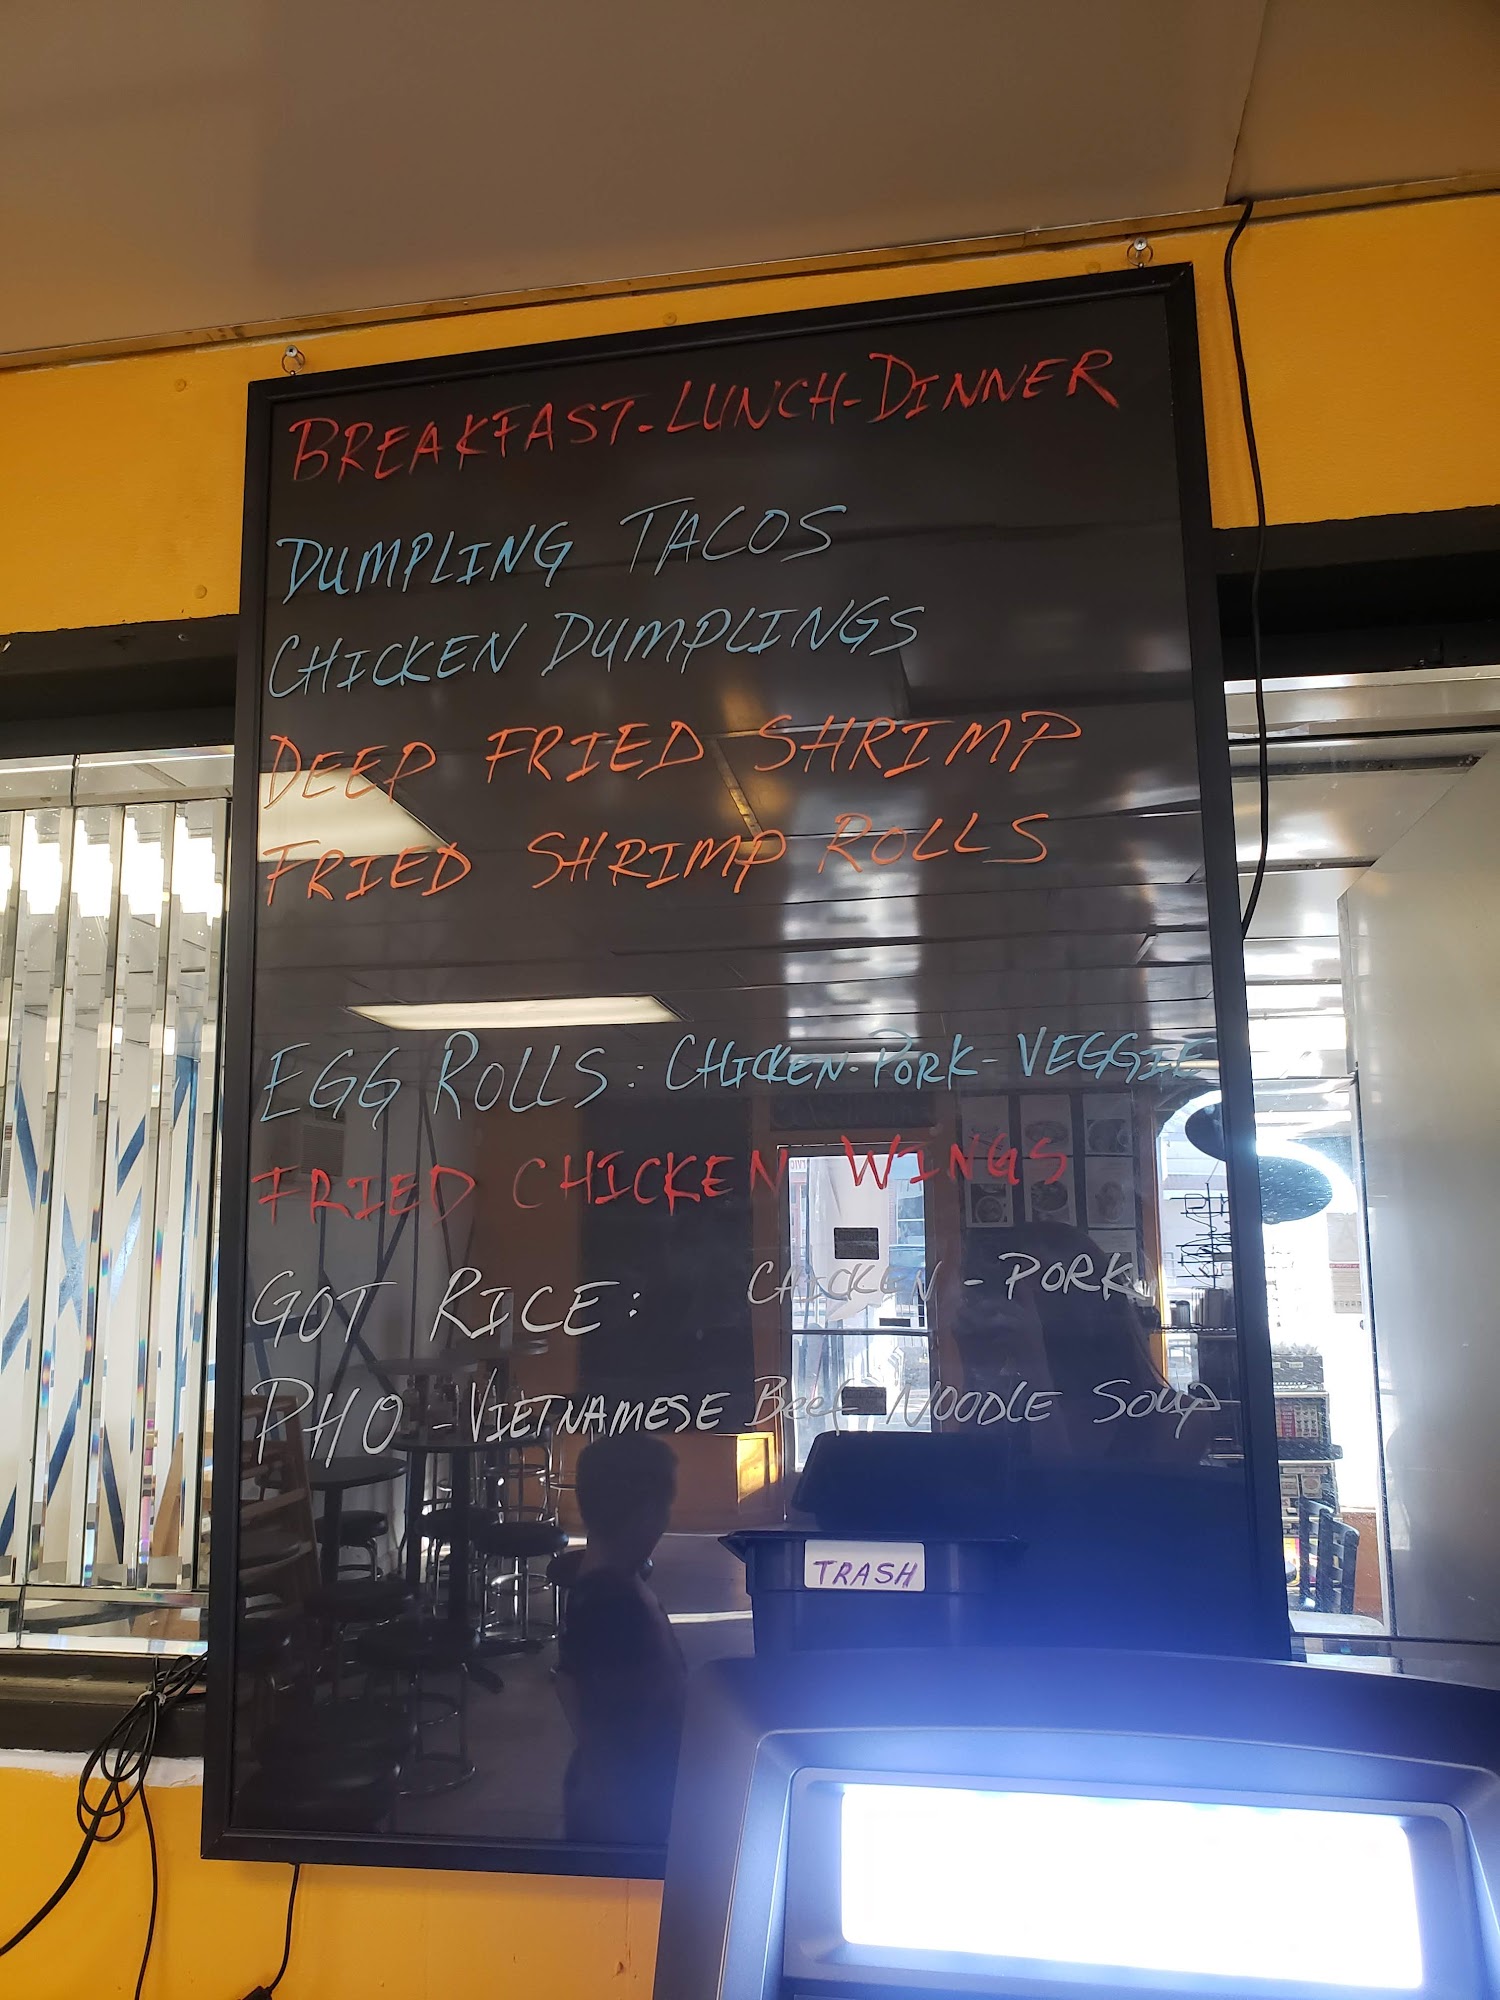 BREAKFAST-LUNCH-DINNER
DUMPLING TACOS
CHICKEN DUMPLINGS
DEEP FRIED SHRIMP
FRIED SHRIMP ROLLS
EGG ROLLS: CHICKEN-PORK-VEGGIE
FRIED CHICKEN WINGS
GOT RICE: CHICKEN - PORK
PHO - VIETNAMESE Beef NOODLE Soup
TRASH